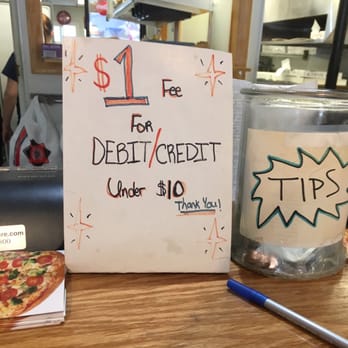 $1 Fee
For
DEBIT/CREDIT
Under $10
Thank You!
TIPS
re.com